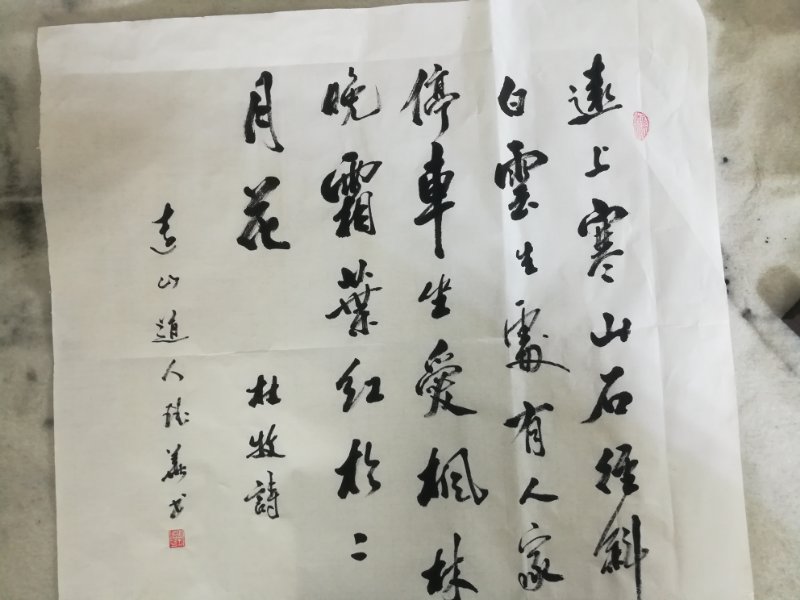 遠上寒山石徑斜
白雲生處有人家
停車坐愛楓林
晚霜葉紅於二
月花
杜牧詩
遠山道人 華书